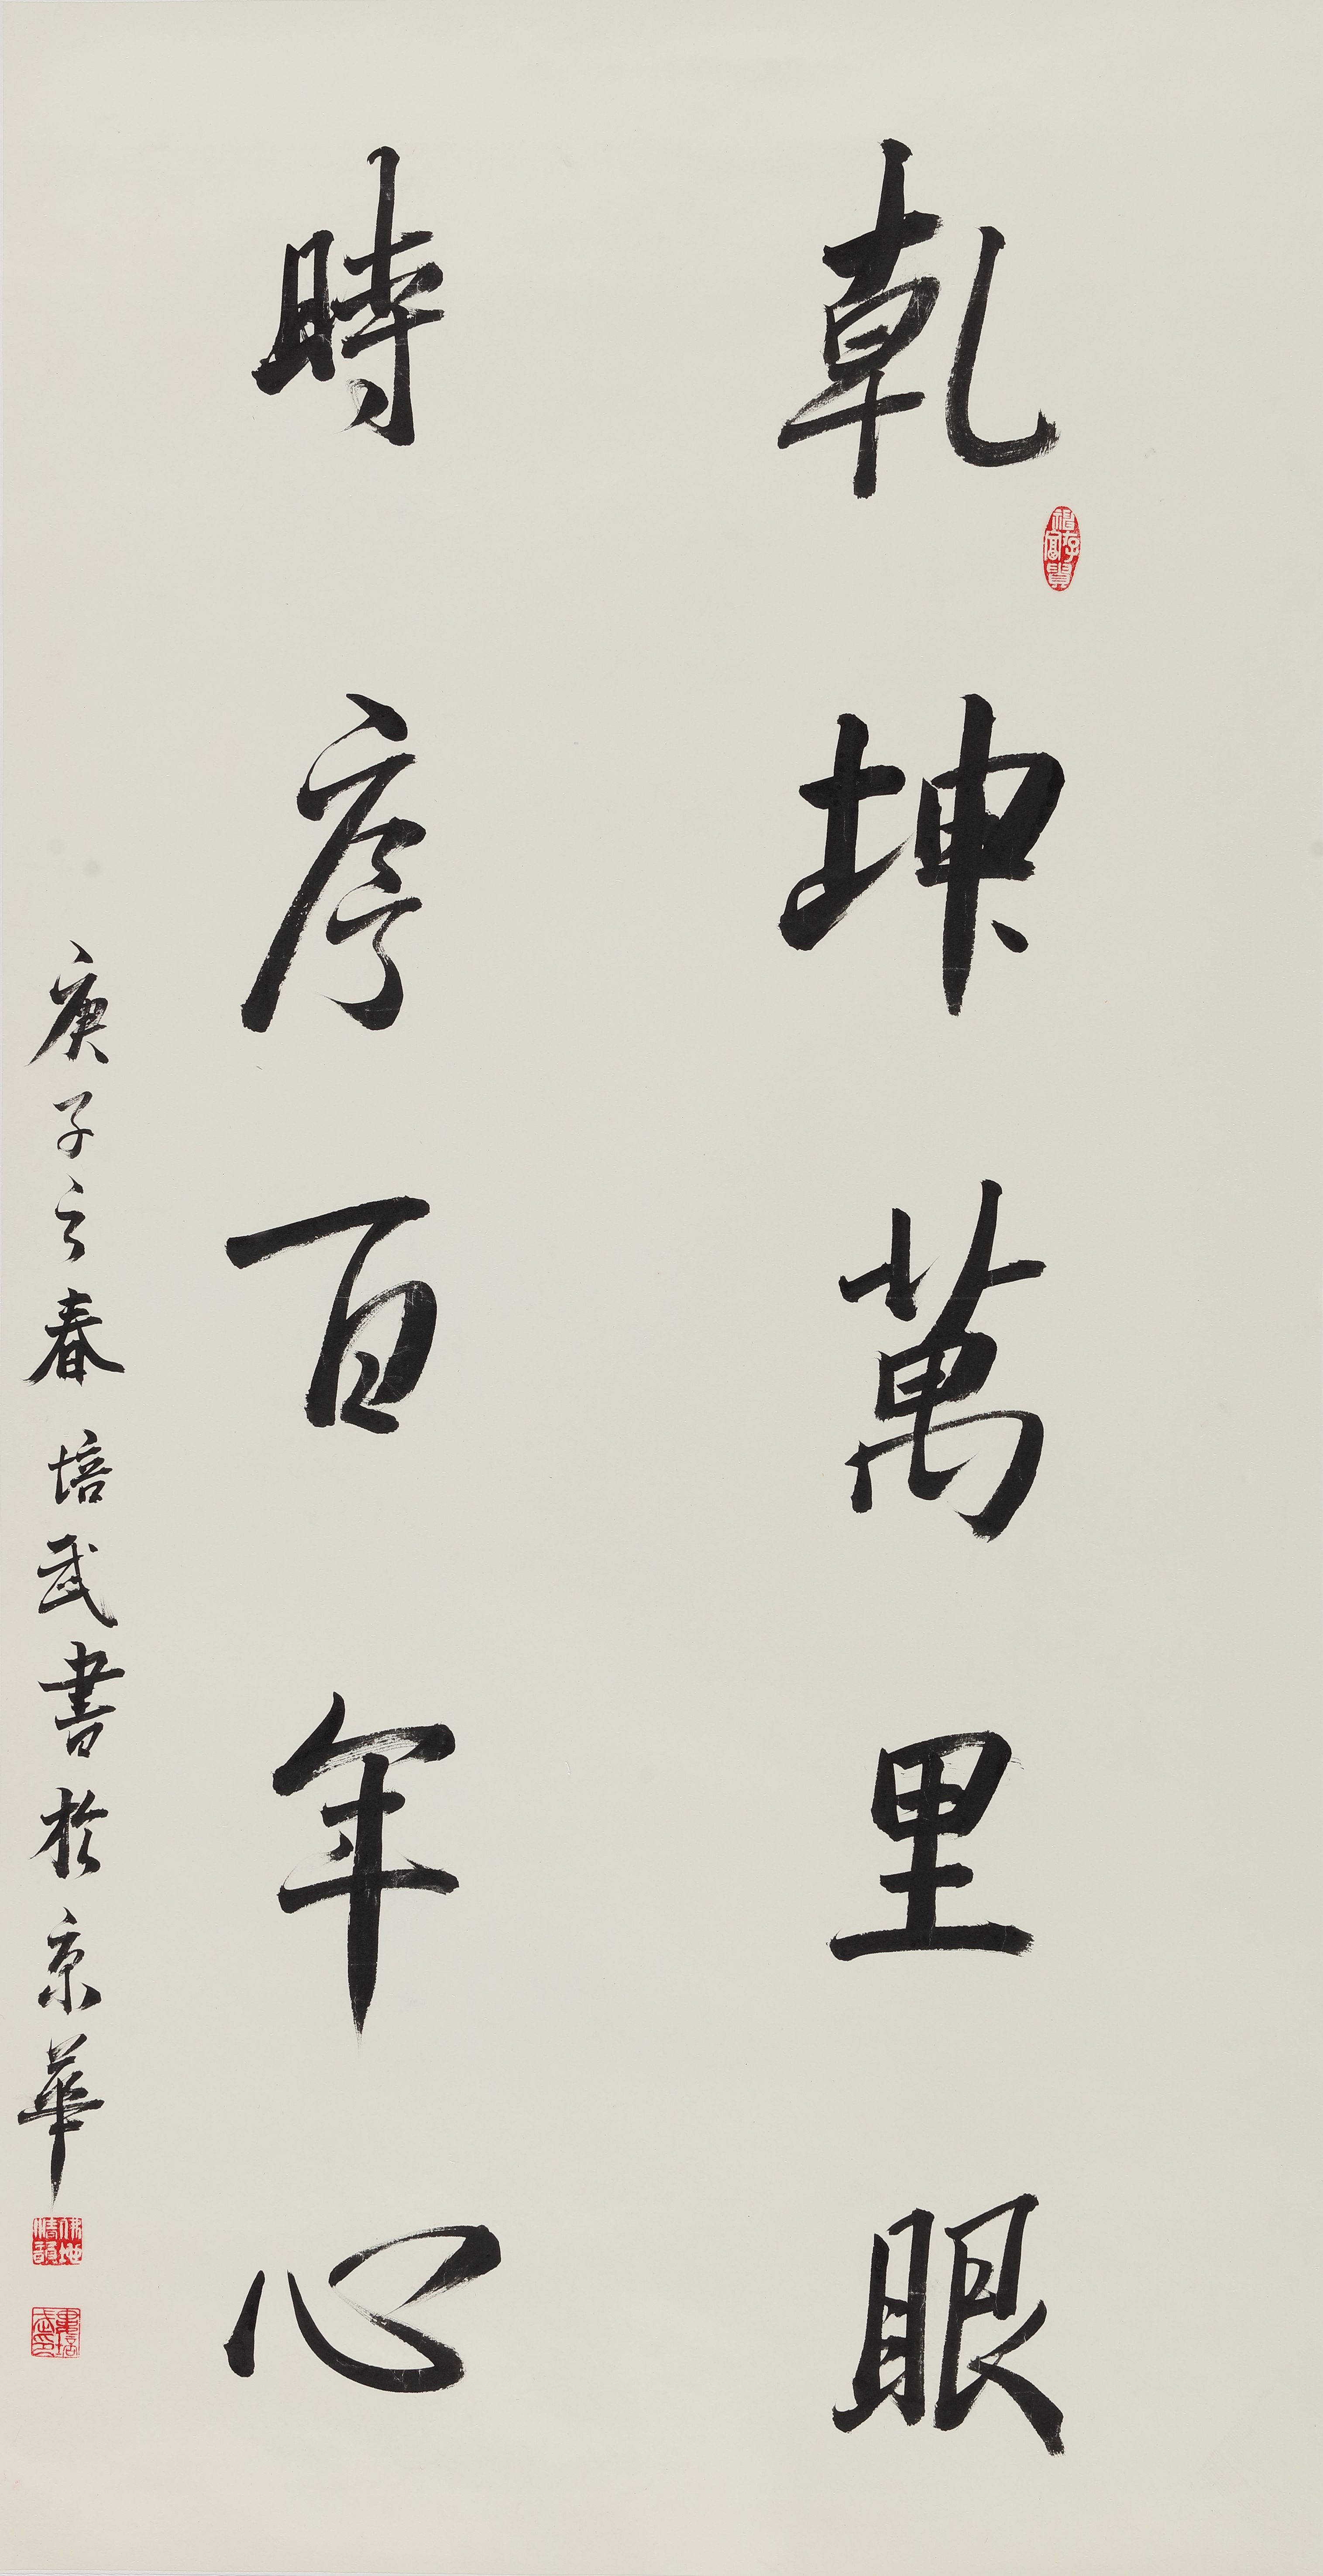 乾坤萬里眼
時序百年心
庚子之春 培武書於京華